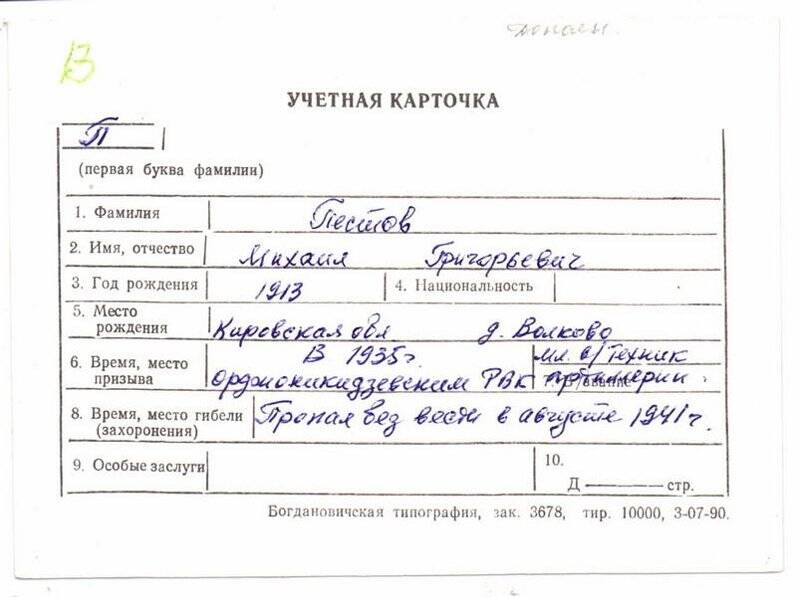 В
УЧЕТНАЯ КАРТОЧКА
П
(первая буква фамилии)
1. Фамилия Пестов
2. Имя, отчество Михаил Григорьевич
3. Год рождения 1913 4. Национальность
5. Место рождения Кировская обл д. Волково
6. Время, место призыва В 1935г. Орджоникидзевским РВК
мл. в/техник артиллерии
8. Время, место гибели (захоронения) Пропал без вести в августе 1941г.
9. Особые заслуги 10.
Д ——— стр.
Богдановичская типография, зак. 3678, тир. 10000, 3-07-90.